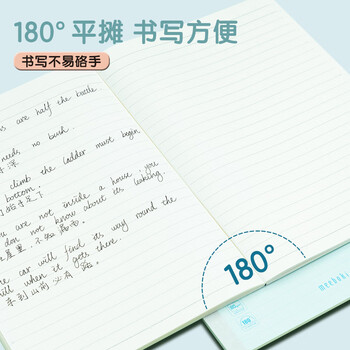 180° 平摊 书写方便
书写不易硌手
are half the battle
needs no bush
climb the ladder must begin
bottom.
are not inside a house, you
don not know about its leaking.
car will find its way round the
hill when it gets there.
180°